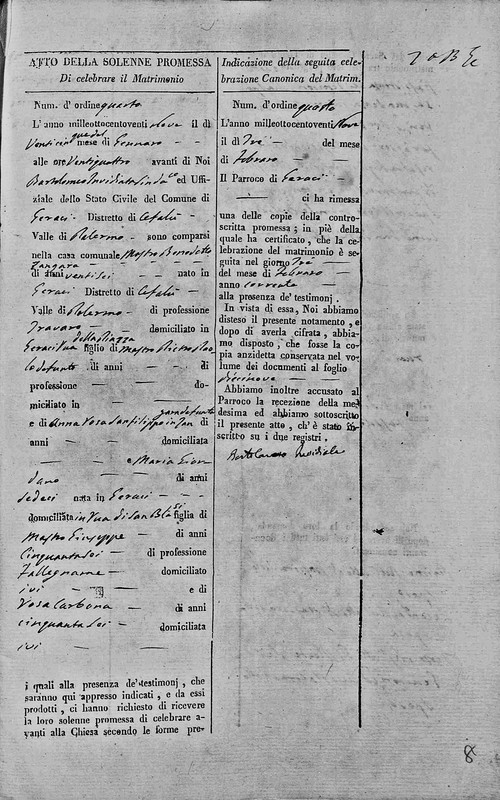 ATTO DELLA SOLENNE PROMESSA
Di celebrare il Matrimonio
Num. d' ordine quarto
L' anno milleottocentoventi Nove il dì
Venticinque del mese di Gennaro
alle ore Ventiquattro avanti di Noi
Bartolomeo Invidiata Sindaco ed Uffi-
ziale dello Stato Civile del Comune di
Geraci Distretto di Cefalù
Valle di Palermo sono comparsi
nella casa comunale Mastro Benedetto
Zangara
di anni ventisei nato in
Geraci Distretto di Cefalù
Valle di Palermo di professione
domiciliato in
Geraci Via della Piazza figlio di Mastro Pietro
di anni — di
professione — do-
miciliato in —
e di Anna Rosa Sanfilippo di
anni — domiciliata
— e Maria Gior
dano di anni
Sedeci nata in Geraci
domiciliata in Via di San Blasi figlia di
Mastro Giuseppe — di anni
Cinquantasei — di professione
Fallegname — domiciliato
ivi — e di
Rosa Carbona — di anni
cinquantasei — domiciliata
ivi —
i quali alla presenza de' testimonj , che
saranno qui appresso indicati , e da essi
prodotti , ci hanno richiesto di ricevere
la loro solenne promessa di celebrare a-
vanti alla Chiesa secondo le forme pre-
Indicazione della seguita cele-
brazione Canonica del Matrim.
Num. d' ordine quarto
L'anno milleottocentoventi Nove
il dì Tre — del mese
di Febraro —
Il Parroco di Geraci —
— ci ha rimessa
una delle copie della contro-
scritta promessa ; in piè della
quale ha certificato, che la ce-
lebrazione del matrimonio è se-
guita nel giorno Tre
del mese di Febraro —
anno corrente —
alla presenza de' testimonj .
In vista di essa, Noi abbiamo
disteso il presente notamento , e
dopo di averla cifrata , abbia-
mo disposto , che fosse la co-
pia anzidetta conservata nel vo-
lume dei documenti al foglio
diecinove —
Abbiamo inoltre accusato al
Parroco la recezione della me-
desima ed abbiamo sottoscritto
il presente atto , ch' è stato in-
scritto su i due registri .
Bartolomeo Invidiata
8